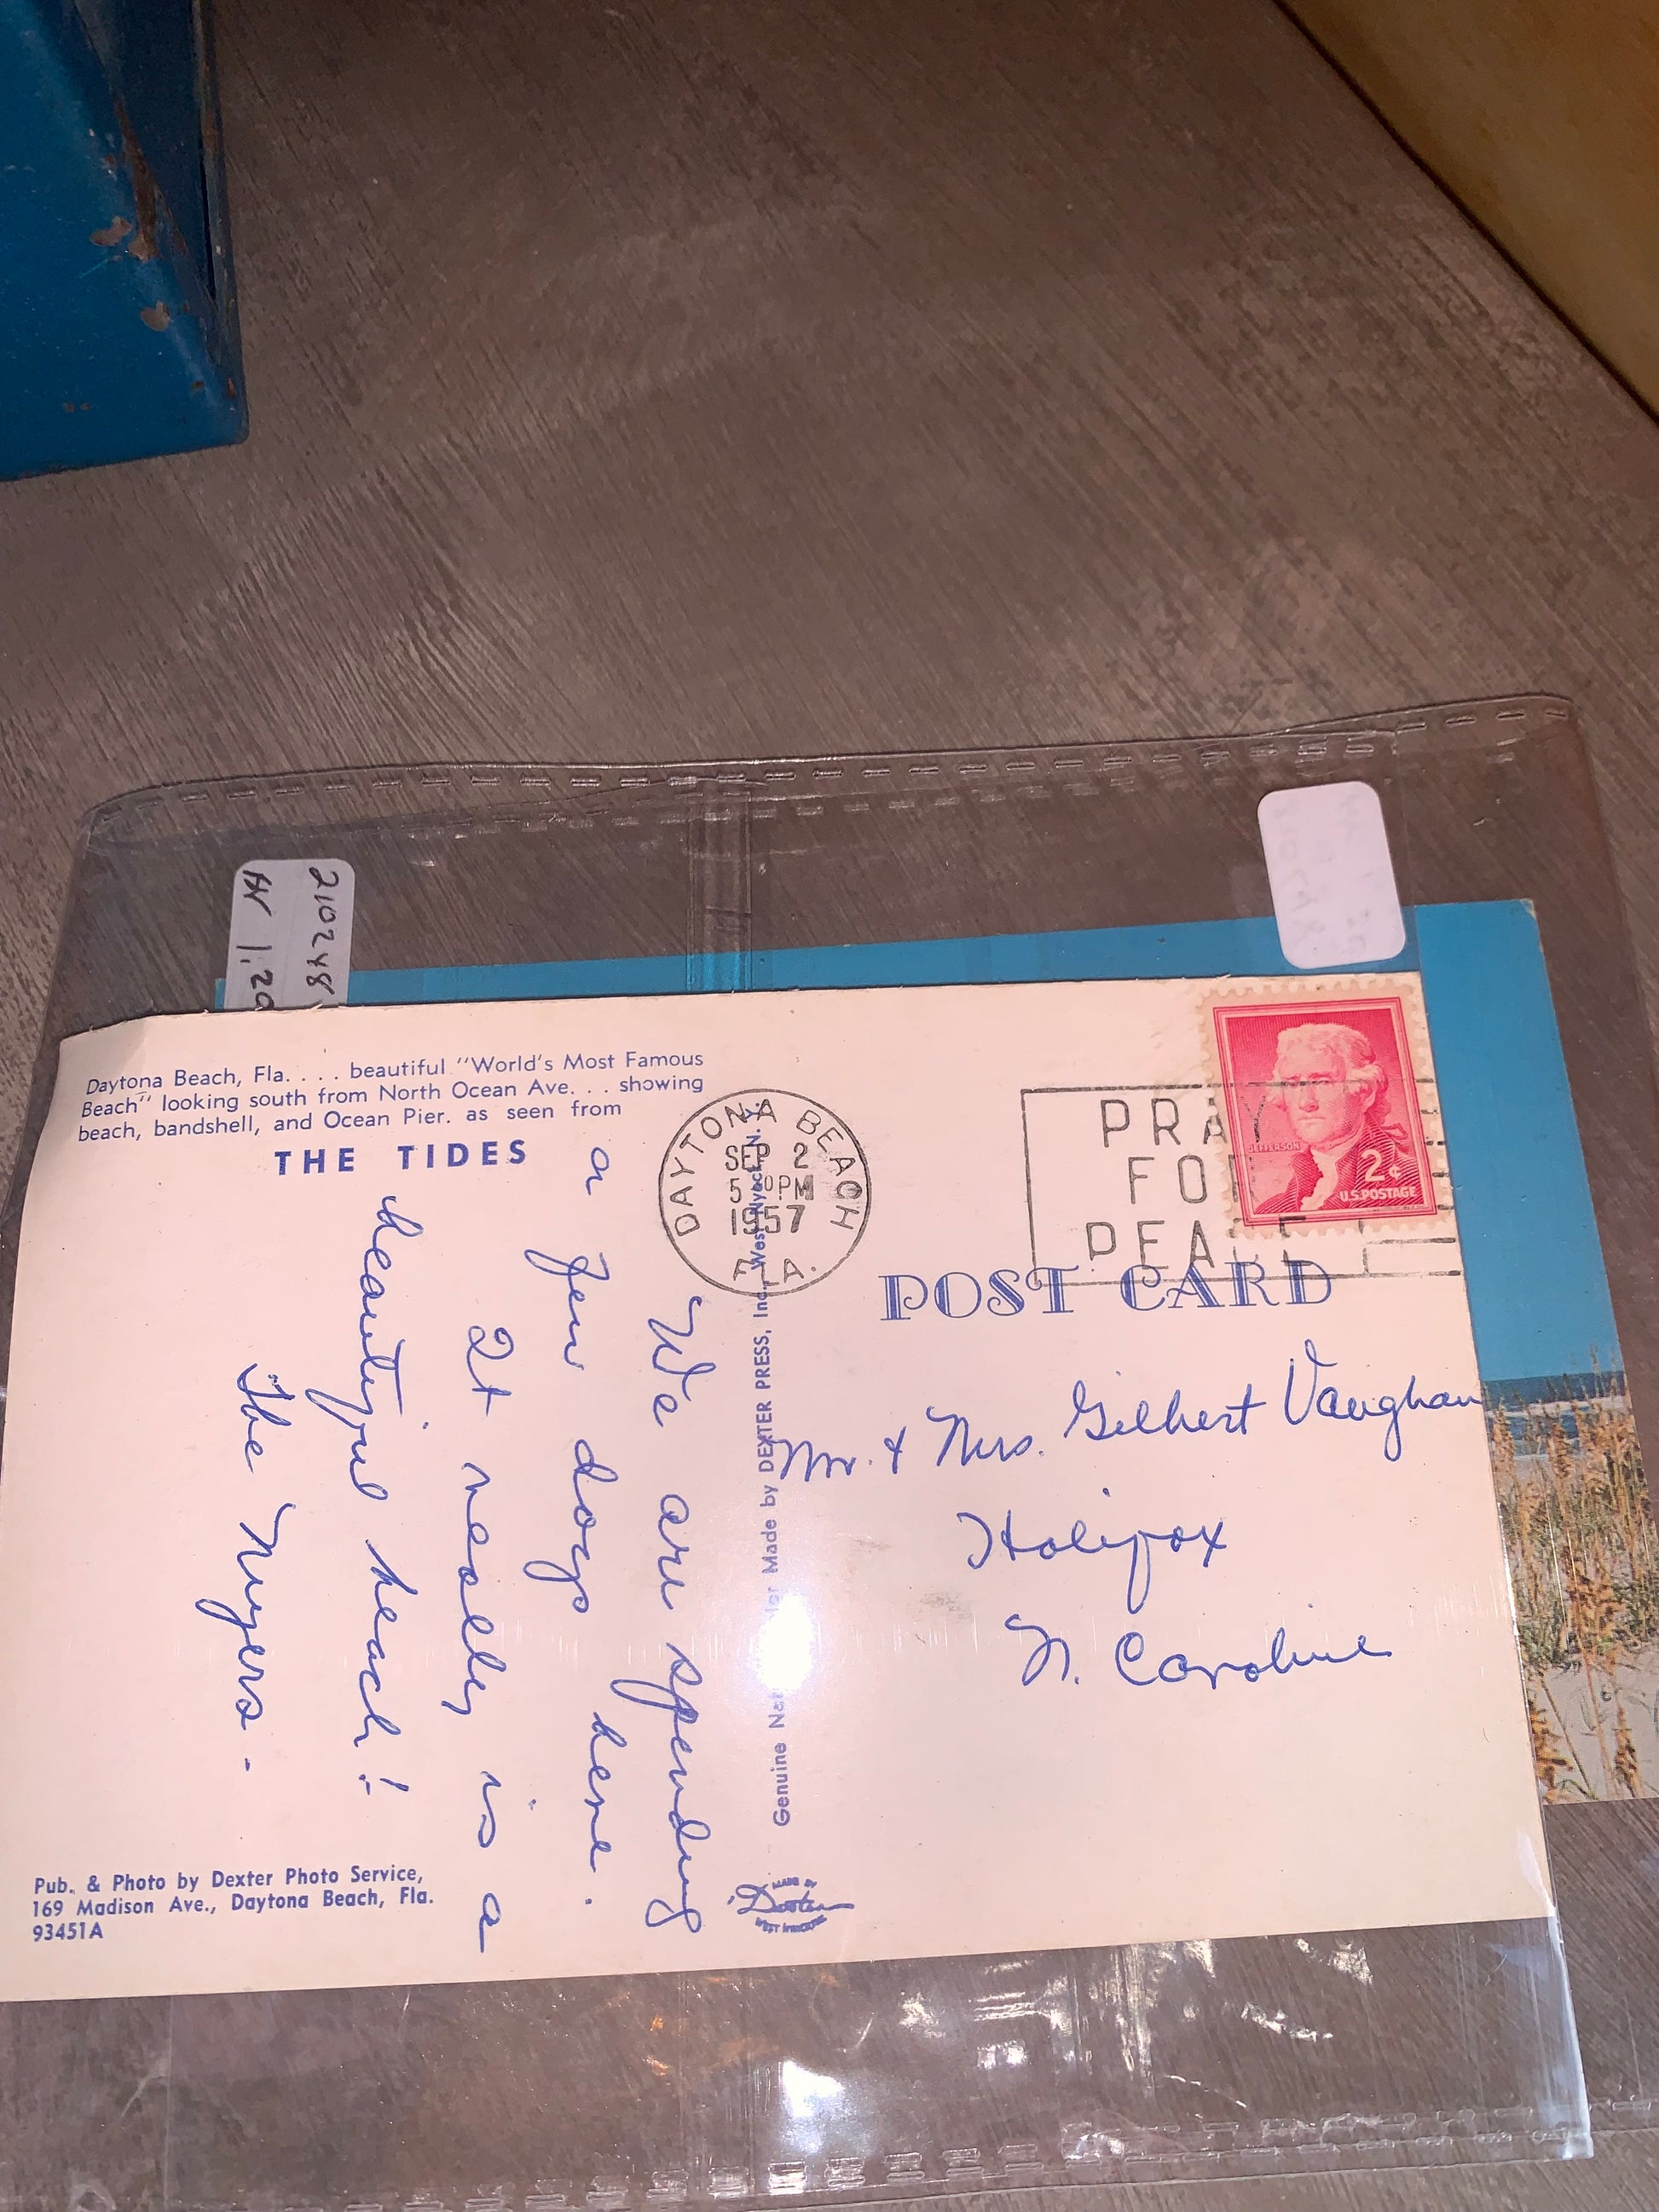 210248
1,20
Daytona Beach, Fla. . . . beautiful "World's Most Famous
Beach" looking south from North Ocean Ave. . . showing
beach, bandshell, and Ocean Pier. as seen from
THE TIDES
We are spending
a few days here.
It really is a
beautiful beach!
The Myers.-
Pub. & Photo by Dexter Photo Service,
169 Madison Ave., Daytona Beach, Fla.
93451A
DAYTONA BEACH
SEP 2
5 PM
1957
FLA.
Genuine Made by DEXTER PRESS, Inc., West Nyack, N. Y.
MADE BY
Dexter
WEST NYACK
PRAY
FOR
PEACE
JEFFERSON
2¢
U.S. POSTAGE
POST CARD
Mr. & Mrs. Gilbert Vaughan
Halifax
N. Carolina